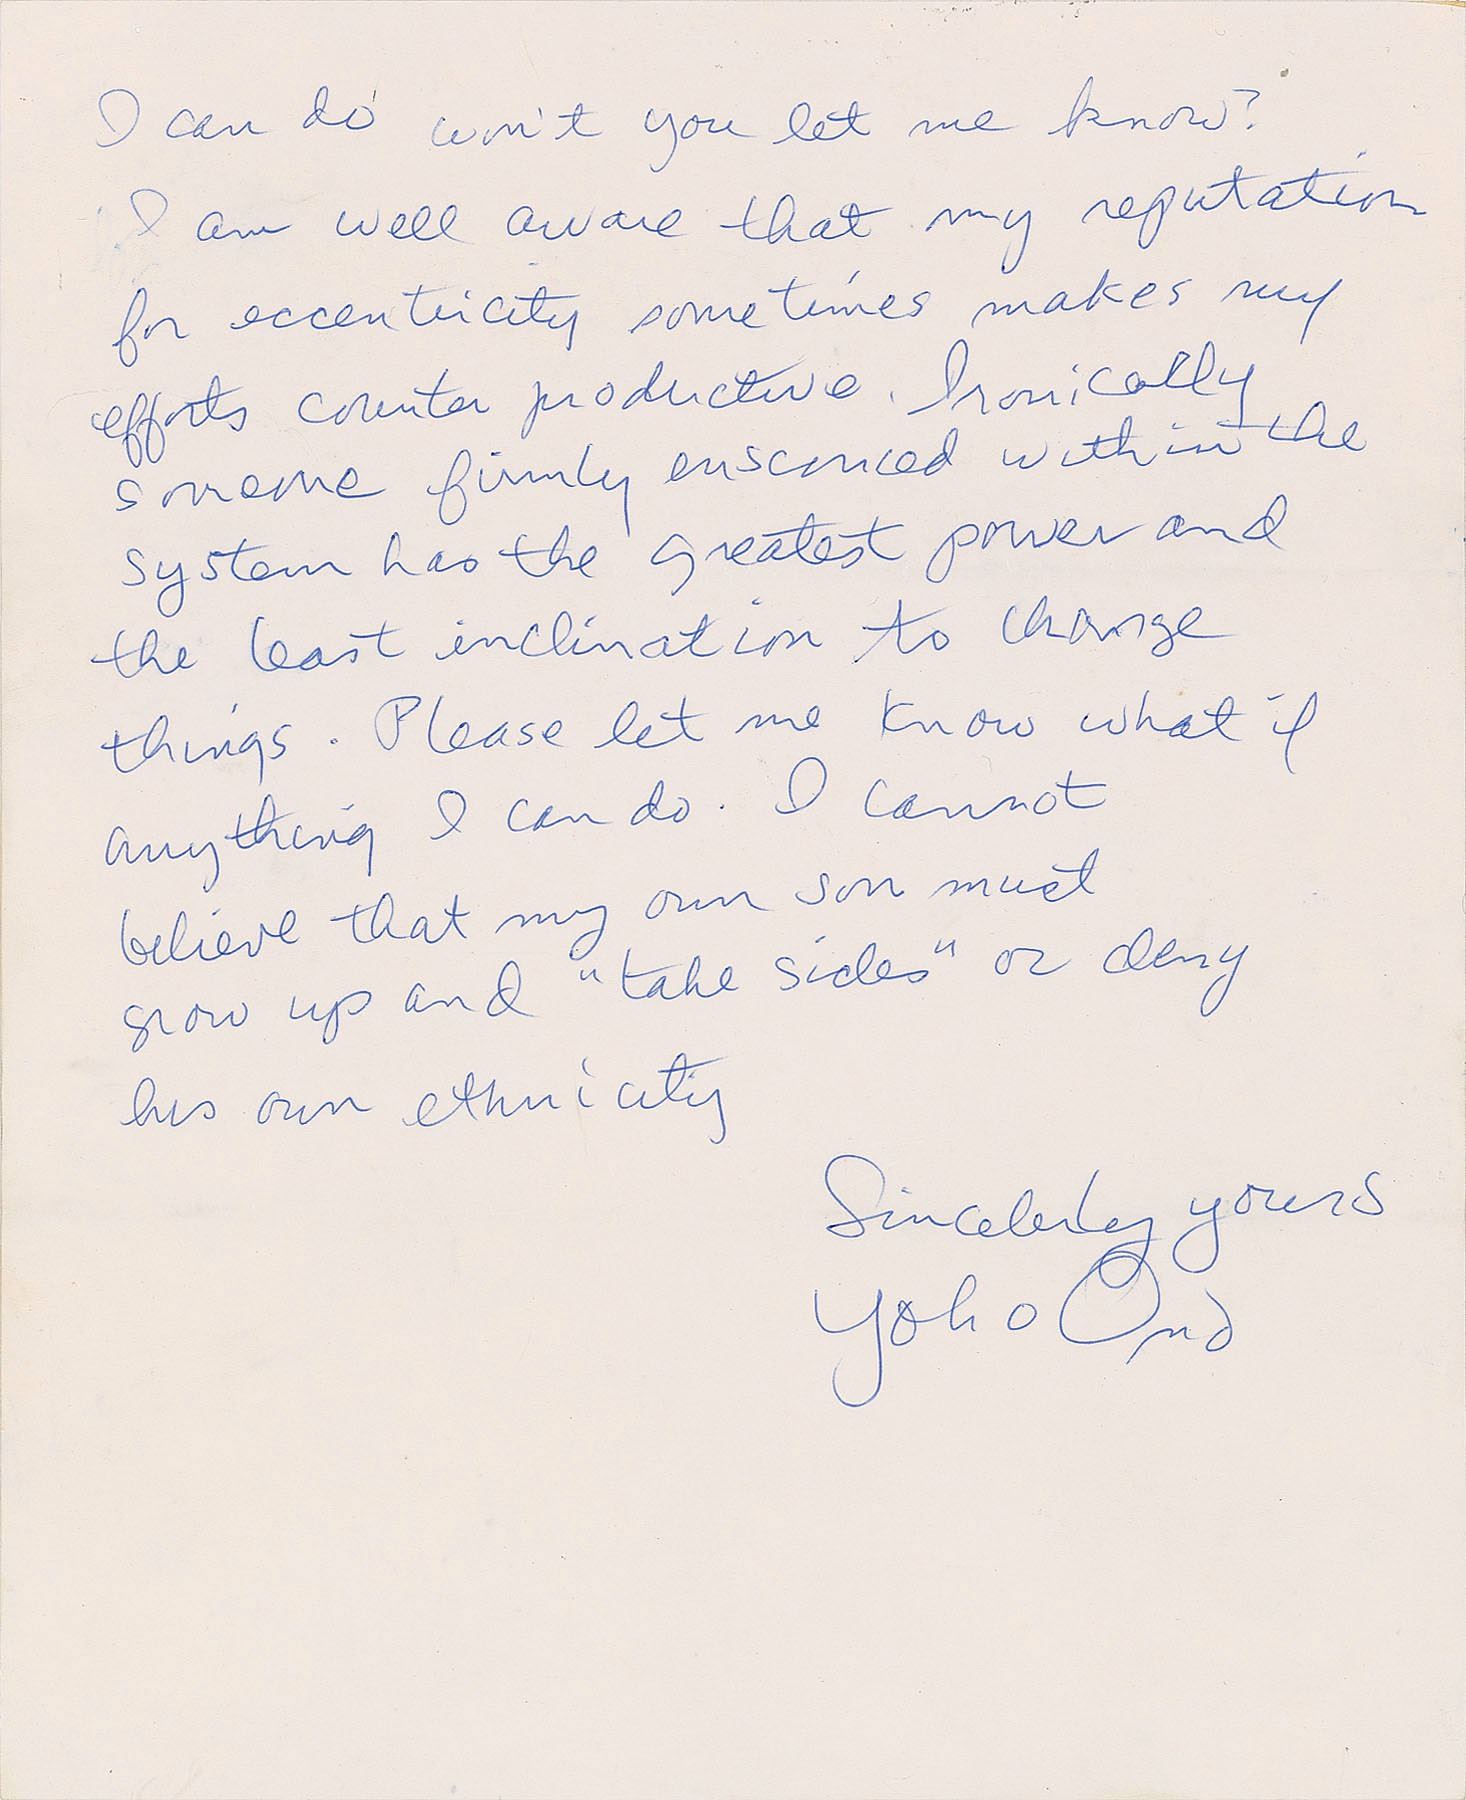 I can do won't you let me know?
I am well aware that my reputation
for eccentricity sometimes makes my
efforts counter productive. Ironically
someone firmly ensconced within the
system has the greatest power and
the least inclination to change
things. Please let me know what if
anything I can do. I cannot
believe that my own son must
grow up and "take sides" or deny
his own ethnicity
Sincelerley yours
Yoko Ono